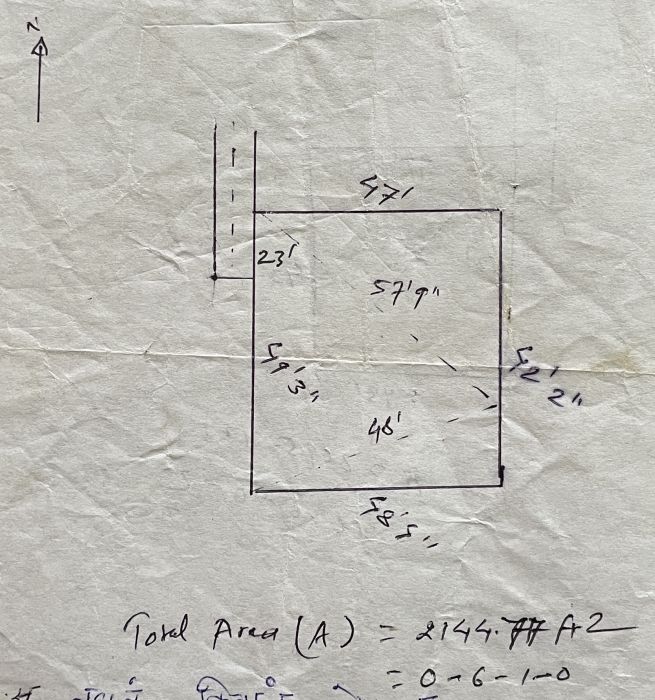 N
47'
23'
57'9"
59'3"
52'2"
46'
58'5"
Total Area (A) = 2144.77 ft2
= 0-6-1-0